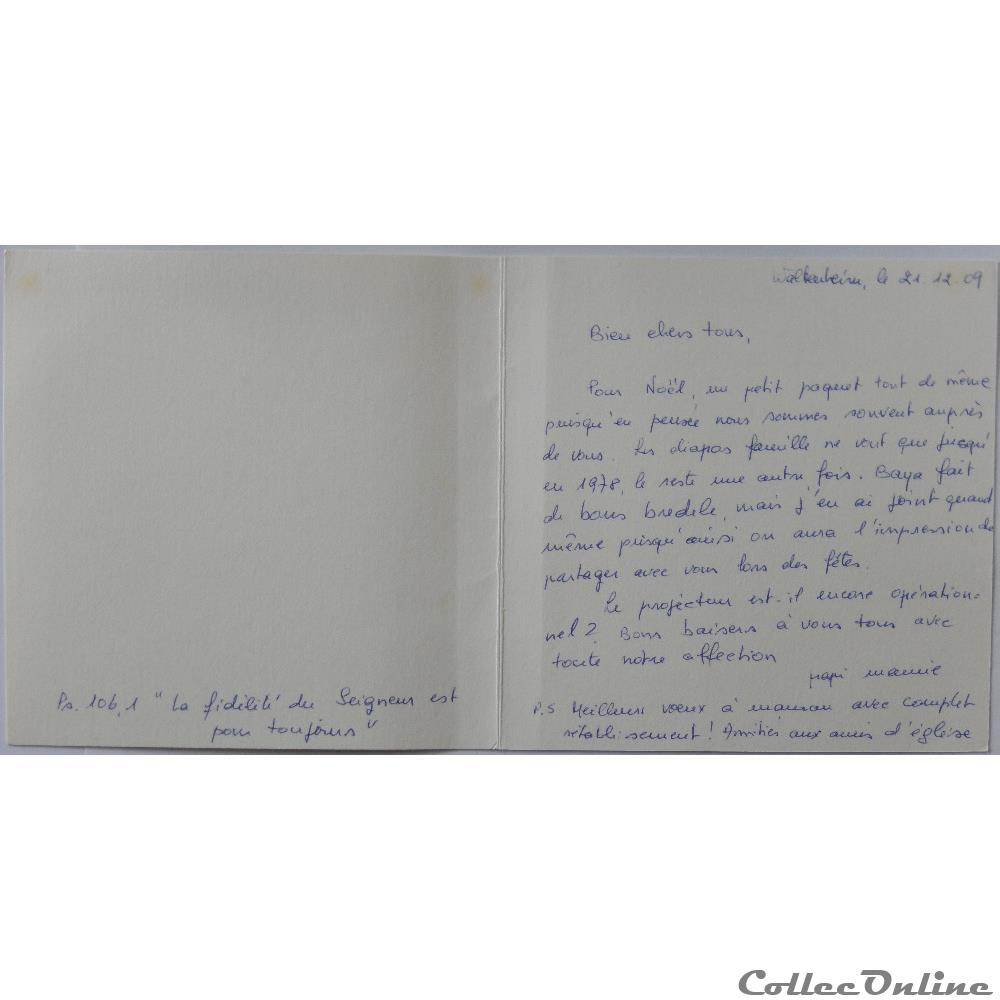 Ps. 106,1 "La fidélité du Seigneur est
pour toujours"
Waltenheim, le 21.12.09
Bien chers tous,
Pour Noël, un petit paquet tout de même
puisqu'en pensée nous sommes souvent auprès
de vous. Les diapos famille ne vont que jusqu'
en 1978, le reste une autre fois. Baya fait
de bons bredele, mais j'en ai joint quand
même puisqu'ainsi on aura l'impression de
partager avec vous lors des fêtes.
Le projecteur est-il encore opération-
nel? Bons baisers à vous tous avec
toute notre affection
papi mamie
P.S Meilleurs vœux à maman avec complet
rétablissement! Amitiés aux amis d'église
CollecOnline